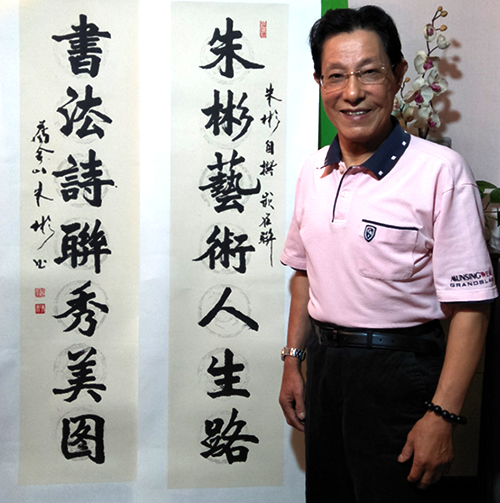 朱彬藝術人生路
朱彬自撰嵌名聯
書法詩聯秀美图
舊金山朱彬书
GRANDSLA